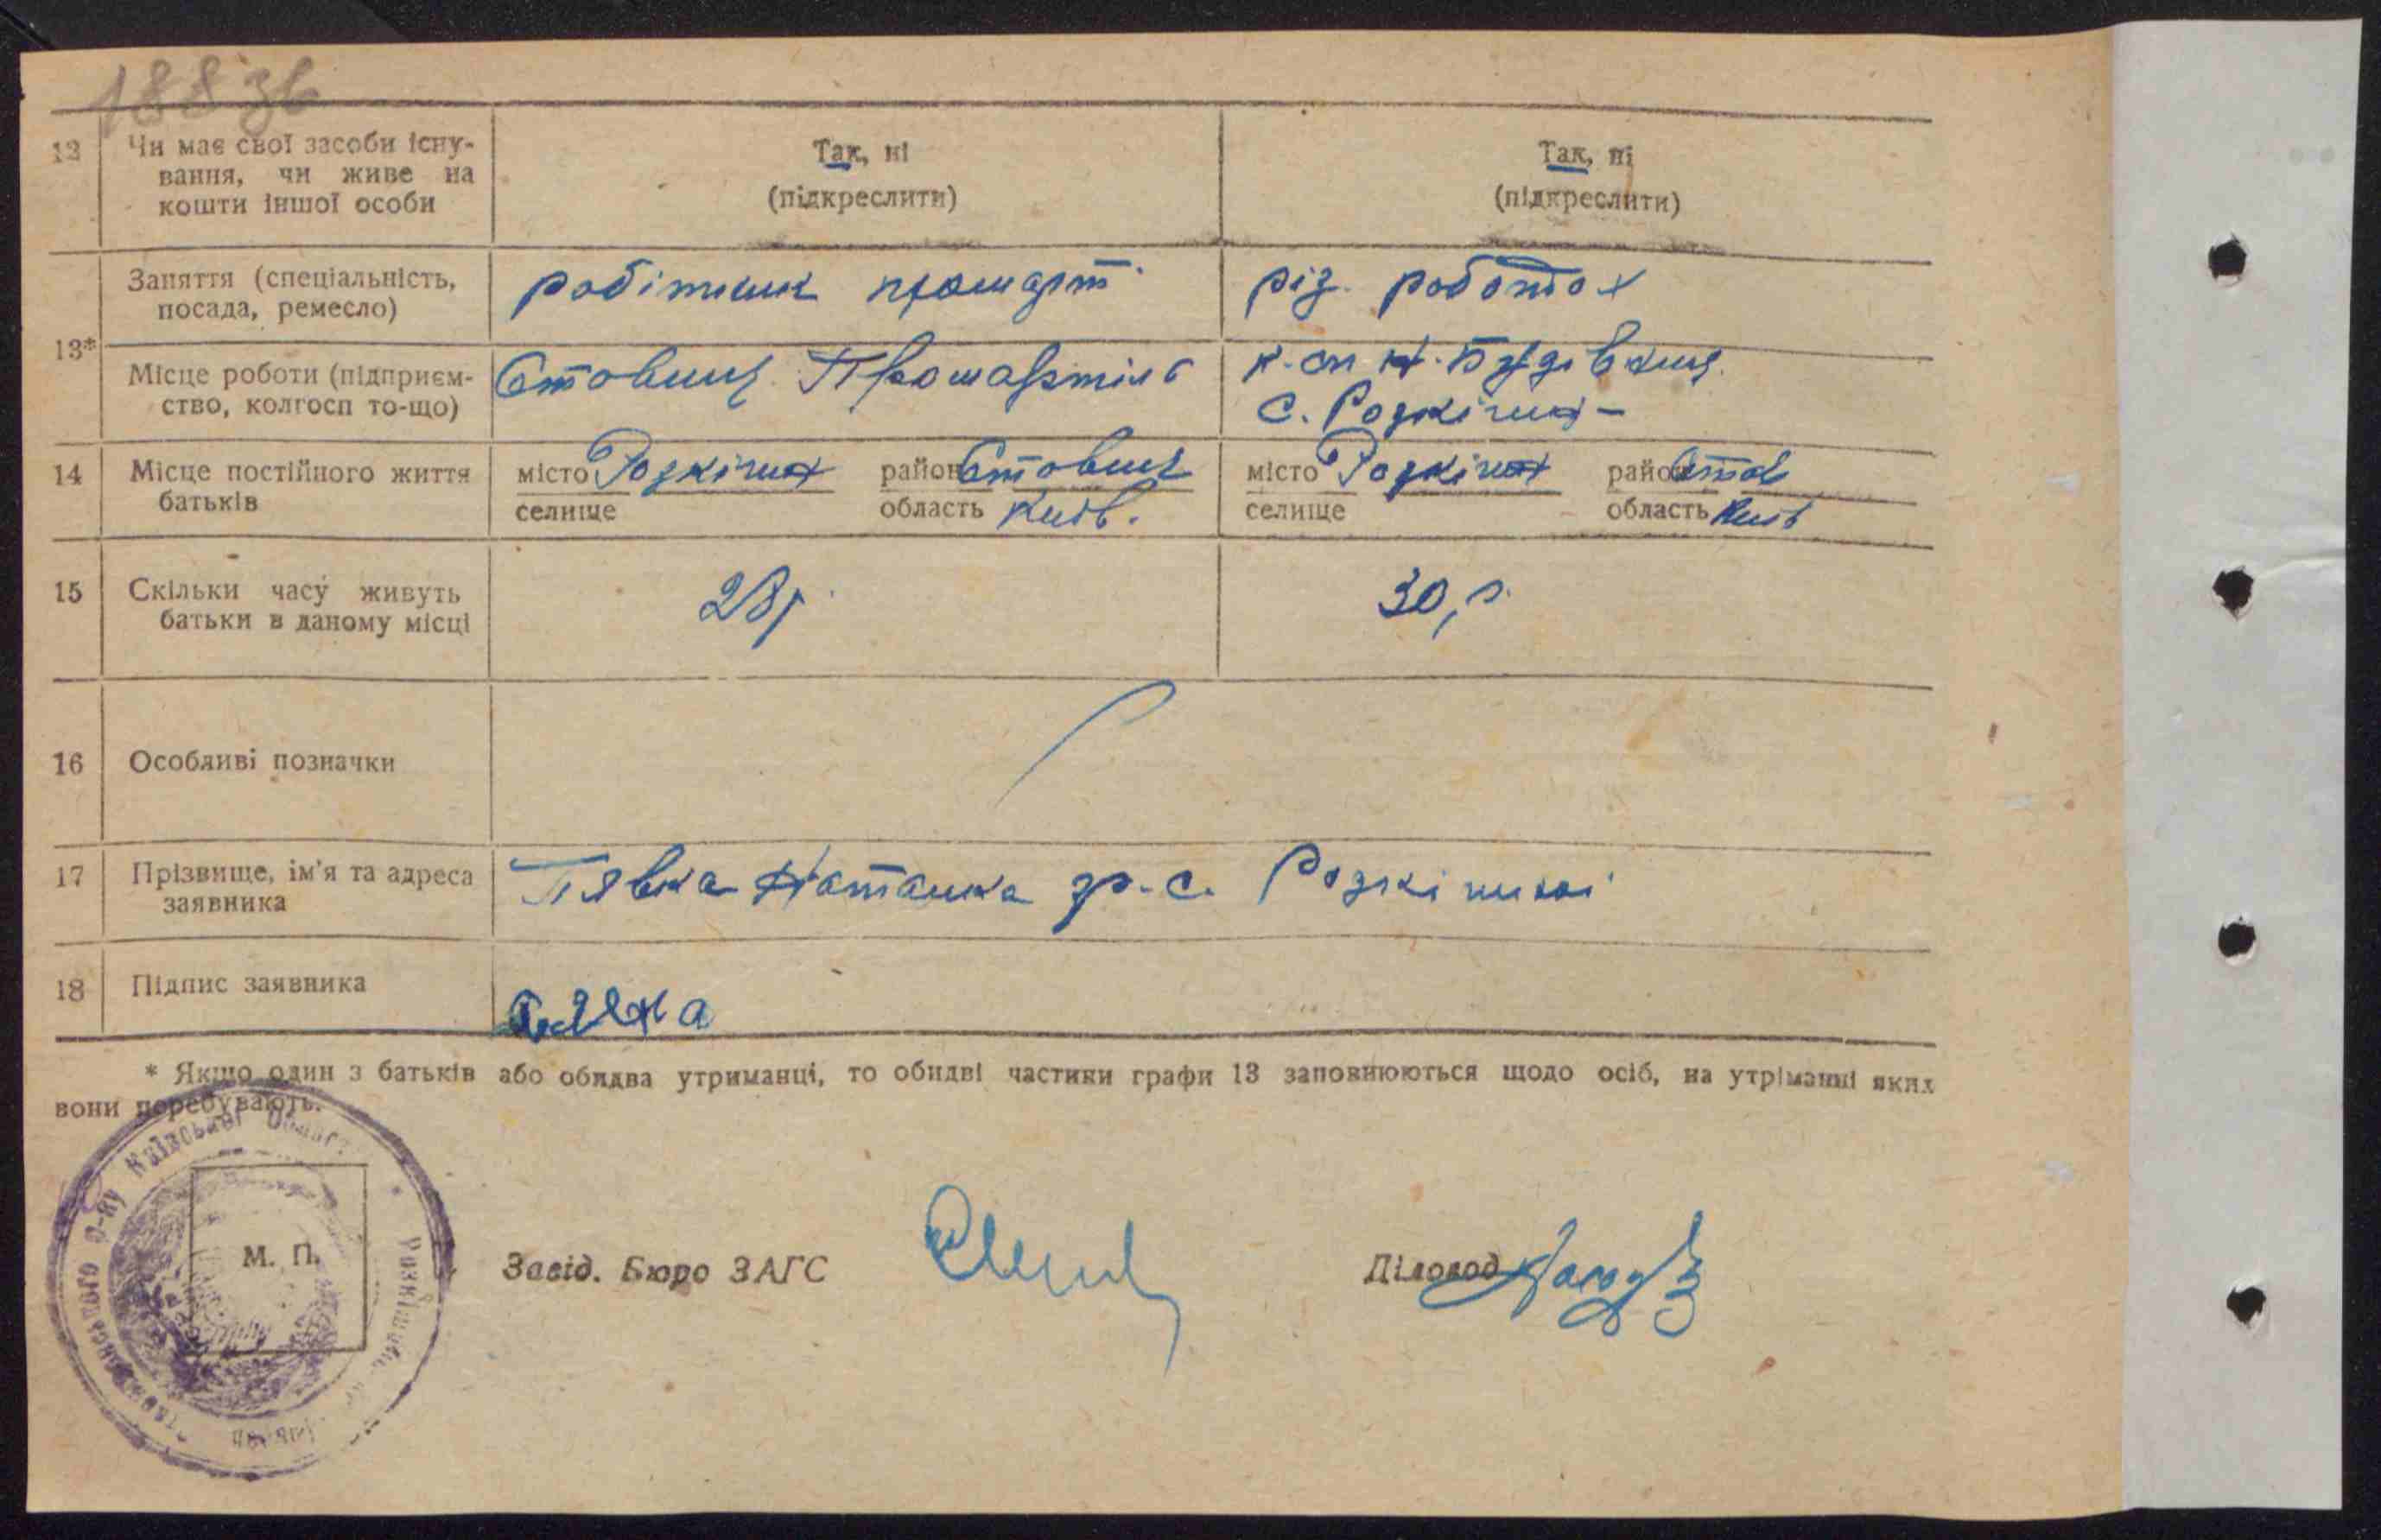 188 зв
12 Чи має свої засоби існу-
вання, чи живе на
кошти іншої особи
Так, ні
(підкреслити)
Так, ні
(підкреслити)
13*
Заняття (спеціальність,
посада, ремесло)
робітник промарт.
різ. роботах
Місце роботи (підприєм-
ство, колгосп то-що)
Ставищ. Промартіль
к-сп Н. Будівниц.
с. Розкішна
14 Місце постійного життя
батьків
місто Розкішна район Ставищ
селище область Київ.
місто Розкішна район Став
селище область Київ
15 Скільки часу живуть
батьки в даному місці
28 р.
30 р.
16 Особливі позначки
17 Прізвище, ім'я та адреса
заявника
Пявка Наталка гр. с. Розкішної
18 Підпис заявника
* Якщо один з батьків або обидва утриманці, то обидві частини графи 13 заповнюються щодо осіб, на утріманні яких
вони перебувають.
Київської Област
р-ну
М. П.
Завід. Бюро ЗАГС
Діловод